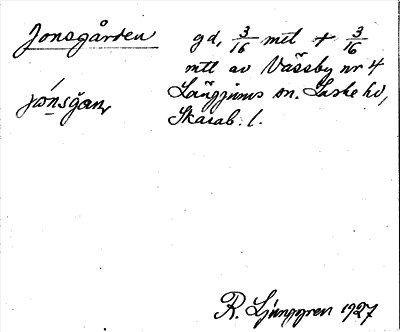 Jonsgården gd, 3/16 mtl + 3/16
mtl av Vässby nr 4
jónsgan, Längjums sn. Laske hd,
Skarab. l.
R. Ljunggren 1927